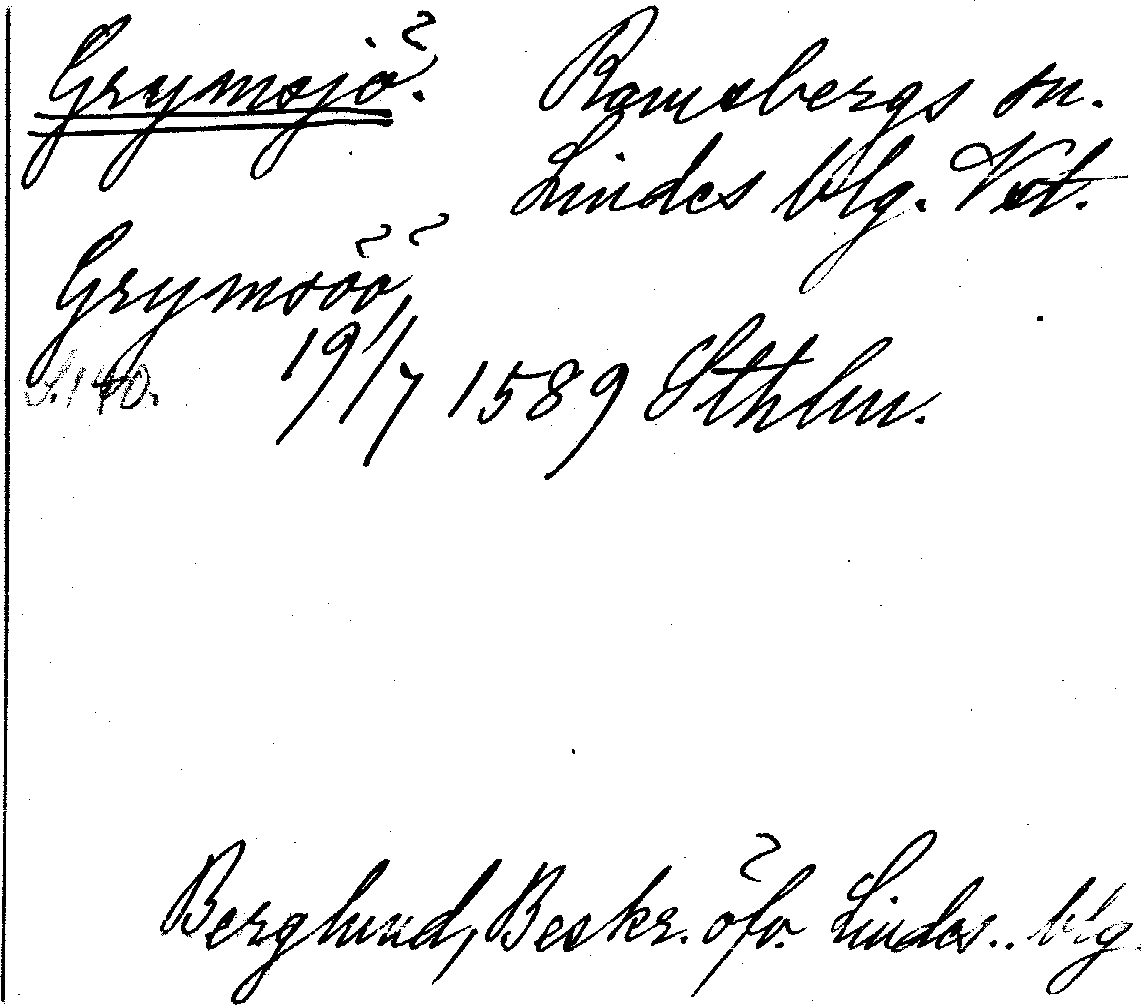 Grymsjö. Ramsbergs sn.
Lindes blg. Vstl.
Grymsöö
S. 140. 19/7 1589 Sthlm.
Berglund, Beskr. öfv. Lindes.. blg